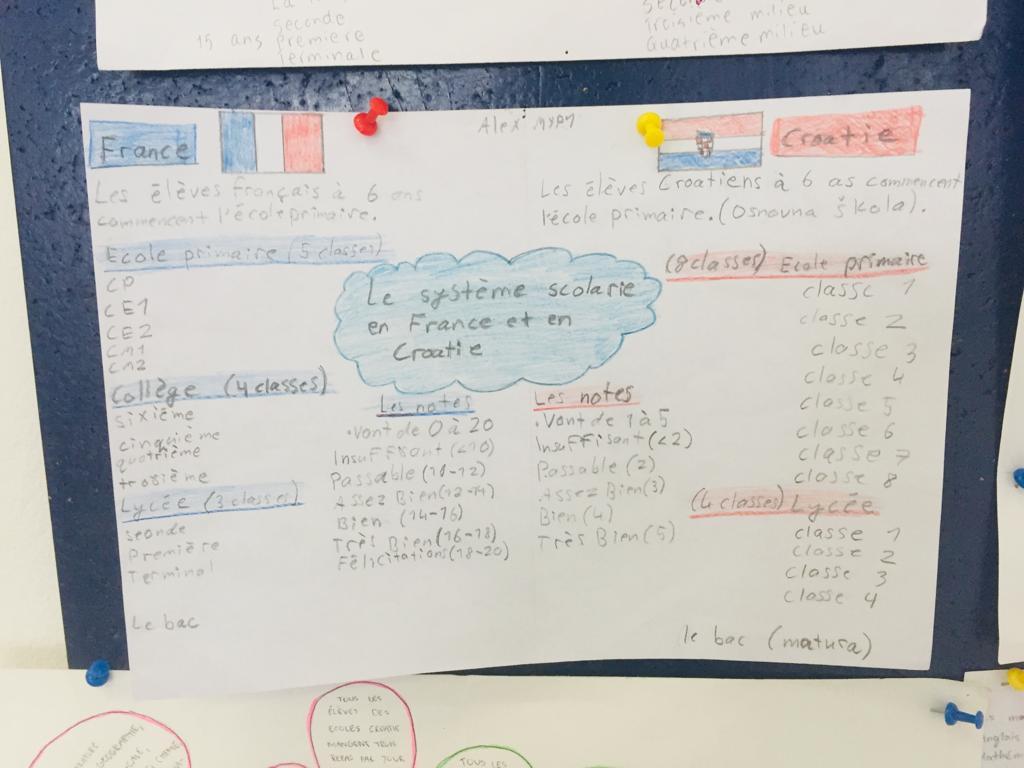 Seconde
15 ans Première
Terminale
Troisième milieu
Quatrième milieu
Alex
France
Les élèves Français à 6 ans
commencent l'école primaire.
Ecole primaire (5 classes)
CP
CE1
CE2
CM1
CM2
Collège (4 classes)
sixième
cinquième
quatrième
troisième
Lycée (3 classes)
seconde
Première
Terminal
Le bac
Le système scolarie
en France et en
Croatie
Les notes
•Vont de 0 à 20
Insuffisant (<10)
Passable (10-12)
Assez Bien (12-14)
Bien (14-16)
Très Bien (16-18)
Félicitations (18-20)
Les notes
•Vont de 1 à 5
Insuffisant (<2)
Passable (2)
Assez Bien (3)
Bien (4)
Très Bien (5)
Croatie
Les élèves Croatiens à 6 as commencent
l'école primaire. (Osnovna Škola).
(8 classes) Ecole primaire
classe 1
classe 2
classe 3
classe 4
classe 5
classe 6
classe 7
classe 8
(4 classes) Lycée
classe 1
classe 2
classe 3
classe 4
le bac (matura)
TOUS LES
ÉLÈVES DES
ECOLES CROATIE
MANGENT
REPAS PAR JOUR
TOUS LES